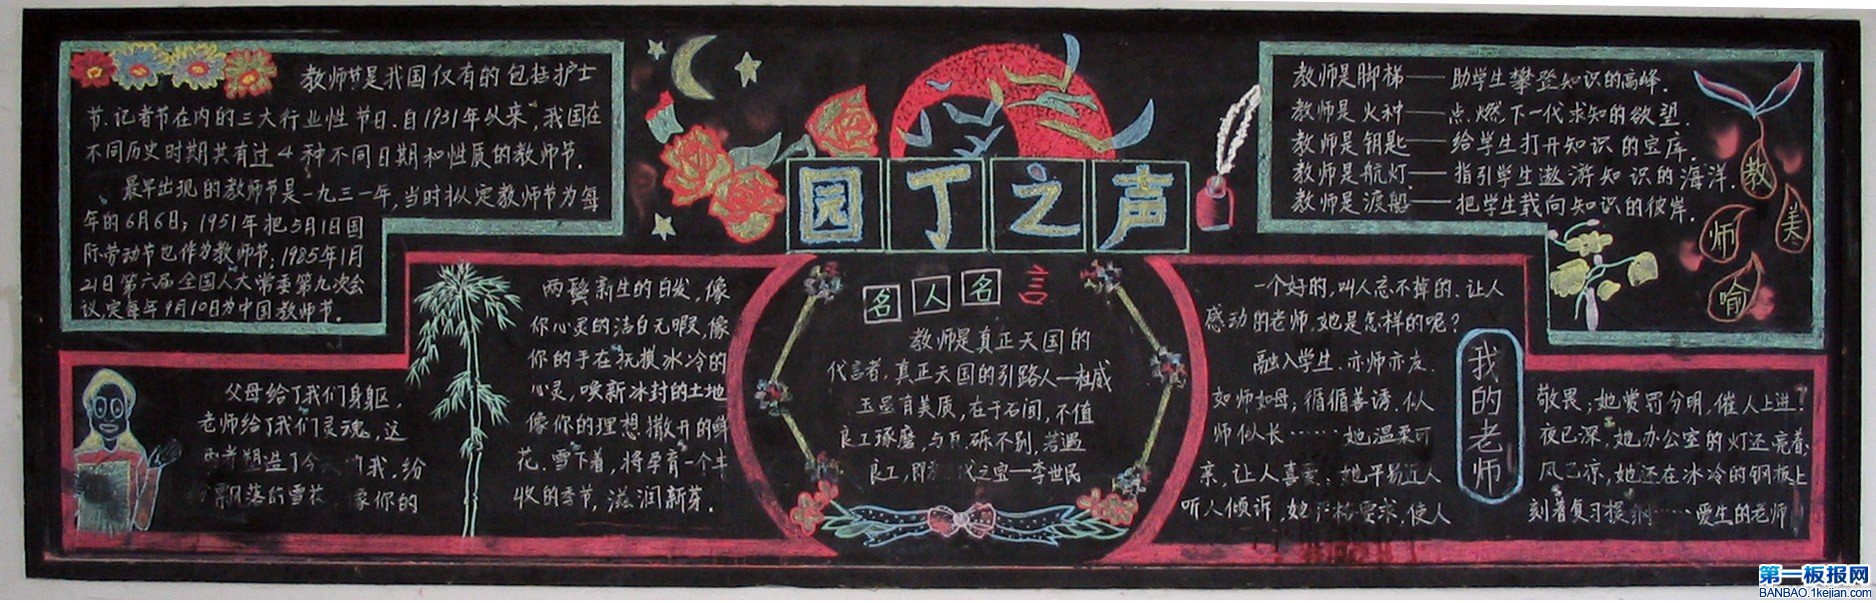 教师节是我国仅有的包括护士
节、记者节在内的三大行业性节日。自1931年以来,我国在
不同历史时期共有过4种不同日期和性质的教师节。
最早出现的教师节是一九三一年,当时拟定教师节为每
年的6月6日;1951年把5月1日国
际劳动节也作为教师节;1985年1月
21日第六届全国人大常委第九次会
议,定每年9月10日为中国教师节。
父母给了我们身躯,
老师给了我们灵魂,这
两者塑造了今 的我,纷
飘落的雪花 象你的
两鬓新生的白发,像
你心灵的洁白无暇,像
你的手在抚摸冰冷的
心灵,唤新冰封的土地
像你的理想撒开的鲜
花。雪下着,将孕育一个丰
收的季节,滋润新芽。
园丁之声
名人名言
教师是真正天国的
代言者,真正天国的引路人—杜威
玉虽有美质,在于石间,不值
良工琢磨,与瓦砾不别,若遇
良工,即 代之宝—李世民
教师是脚梯——助学生攀登知识的高峰.
教师是火种——点燃下一代求知的欲望.
教师是钥匙——给学生打开知识的宝库.
教师是航灯——指引学生遨游知识的海洋.
教师是渡船——把学生载向知识的彼岸.
教
美
师
喻
我的老师
一个好的,叫人忘不掉的、让人
感动的老师,她是怎样的呢?
融入学生,亦师亦友.
如师如母;循循善诱.似人
师似长……她温柔可
亲,让人喜爱、她平易近人
听人倾诉,她 格要求,使人
敬畏;她赏罚分明,催人上进!
夜已深,她办公室的灯还亮着;
风已凉,她还在冰冷的钢板上
刻着复习提纲……爱生的老师
第一板报网
BANBAO.1kejian.com